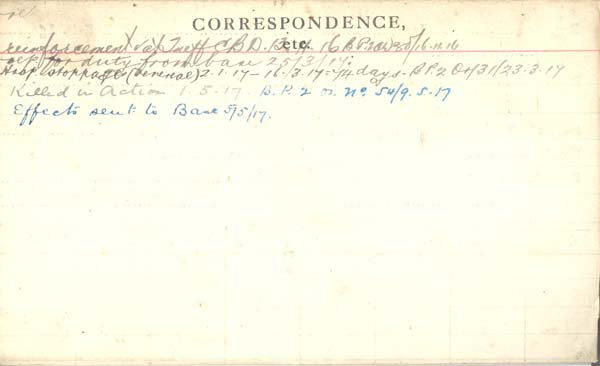 CORRESPONDENCE,
etc.
reinforcement
for duty from base 25/3/17.
Hosp stoppages (Venereal) 2.1.17 – 16.3.17 – 74 days. B.P.2 31/23.3.17
Killed in Action 1.5.17. B.P. 2 no. 54/9.5.17
Effects sent to Base 5/5/17.